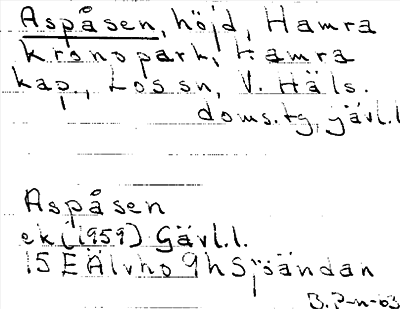 Aspåsen, höjd, Hamra
kronopark, Hamra
kap., Los sn, V. Häls.
doms.tg, jävl.l
Aspåsen
ek (1959) Gävl.l.
15E Älvho 9h Sjöändan